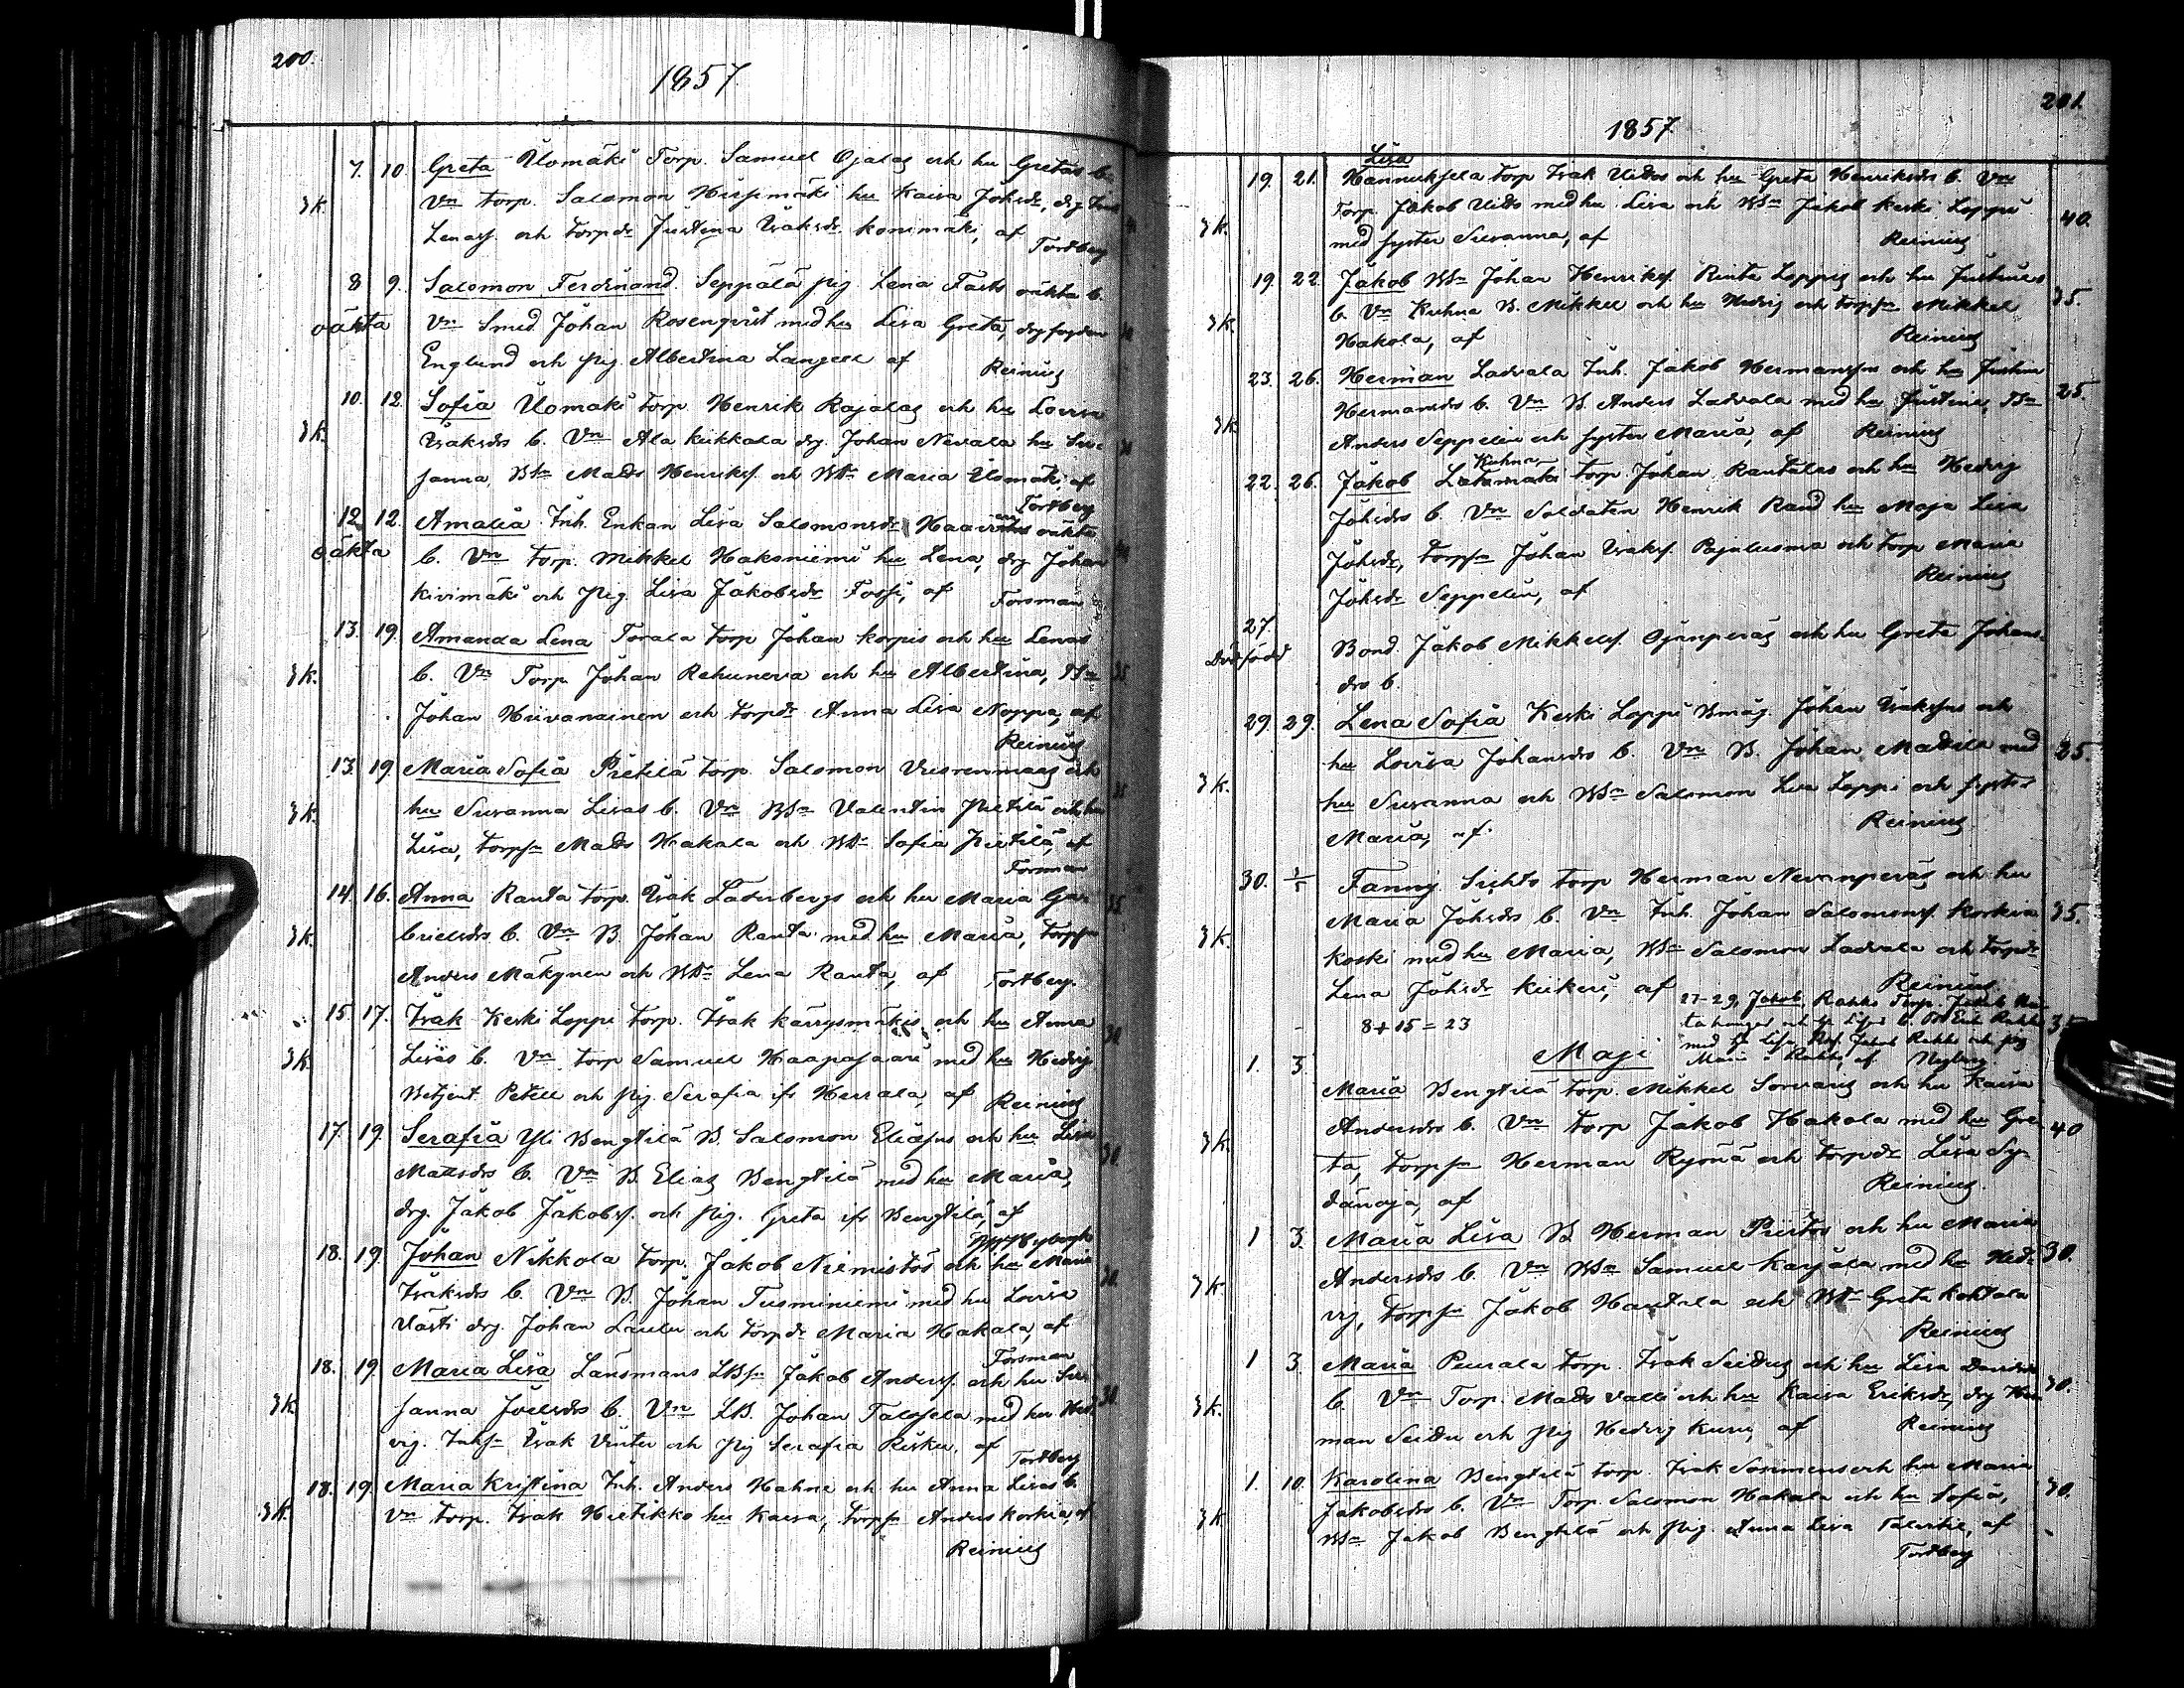 200.
1857.
7. 10. Greta Ulomäki Torp. Samuel Ojalas och hu Gretas b.
3k. Vn torp. Salomon Hirsimäki hu Kaisa Johsdr, drg
Lenas. och torpdr Justina Isaksdr. Konimäki, af Tortberg
8 9. Salomon Ferdinand. Seppälä pig. Lena oäkta b.
oäkta Vn Smed. Johan Rosenqvist med hu Lisa Greta,
Englund och pig. Albertina Langell af Reinius
10. 12. Sofia Ulomäki torp. Henrik Rajalas och hu Lovisa
3k. Isaksdrs b. Vn Ala Kiikkala drg. Johan Nevala hu Su-
sanna, Bsn Mats Henriks. och Bdr Maria Ulomäki, af Tortberg
12. 12. Amalia Inh. Enkan Lisa Salomonsdr oäkta
oäkta b. Vn torp. Mikkel Haksniemi hu Lena, drg. Johan
Kivimäki och pig. Lisa Jakobsdr Fossi, af Forsman
13. 19. Amanda Lena Torala torp Johan Korpis och hu Lenas
3k. b. Vn Torp. Johan Rehuneva och hu Albertina, Bsn 35
Johan Hiivanainen och torpdr Anna Lisa Noppa, af
Reinius
13. 19. Maria Sofia Pietilä torp. Salomon Vuorenmaas och
3k. hu Susanna Lisas b. Vn Bsn Valentin Pietilä och hu
Lisa, torpsn Mats Hakala och Bdr Sofia Pietilä, af
Forsman
14. 16. Anna Ranta torp. Isak Laderbergs och hu Maria Ga- 35
3k. brielsdrs b. Vn B. Johan Ranta med hu Maria, torpsn
Anders Mäkynen och Bdr Lena Ranta, af Tortberg.
15. 17. Isak Keski Loppi torp. Isak Kärrysmäkis och hu Anna 30
3k. Lisas b. Vn torp Samuel Haapasaari med hu Hedvig
Betjent Petell och pig. Serafia ifr Herrala, af Reinius
17. 19. Serafia Yli Bengtilä B. Salomon Eliæsns och hu Lisa
Mattsdrs b. Vn B. Elias Bengtilä med hu Maria, 30.
drg. Jakob Jakobs. och pig. Greta ifr Bengtilä, af
18. 19. Johan Nikkola torp. Jakob Niemistös och hu Maria
Isaksdrs b. Vn B. Johan Tusminiemi med hu Lovisa 30.
Västi drg. Johan Laulu och torpdr Maria Hakala, af
Forsman
18. 19. Maria Lisa Länsmans LBsn Jakob Anderss. och hu Su-
3k sanna Joelsdrs b. Vn LB. Johan Talosela med hu Hed-
vig. Inhsn Isak Vinter och pig Serafia Risku, af
Tortberg
18. 19. Maria Kristina Inh. Anders Hahne och hu Anna Lisas b.
3k. Vn torp. Isak Hietikko hu Kaisa, torpsn Anders Korkia, af
Reinius
201
1857.
Lisa
19. 21. Hannuksela torp Isak Uitos och hu Greta Henriksdrs b. Vn
3k. Torp. Jakob Uito med hu Lisa och Bsn Jakob Keski Loppi 40.
med syster Susanna, af Reinius
19. 22. Jakob Bsn Johan Henriks. Rinta Loppis och hu Justinas 35.
3k. b. Vn Kuhna B. Mikkel och hu Hedvig och torpsn Mikkel
Hakola, af Reinius
23. 26. Herman Ladvala Inh. Jakob Hermanssns och hu Justina
3k Hermansdrs b. Vn B. Anders Ladvala med hu Justina, Bsn 25.
Anders Seppelin och syster Maria, af Reinius
Kuhna
22. 26. Jakob Latamäki torp Johan Rantalas och hu Hedvig
Johsdrs b. Vn Soldaten Henrik Rand hu Maja Lisa
Johsdr, torpsn Johan Isaks. Pajuluoma och torp Maria
Johsdr Seppelin, af Reinius
27. Dödfödd Bond. Jakob Mikkels. Ojanperäs och hu Greta Johans-
drs b.
29. 29. Lena Sofia Keski Loppi Bmåg. Johan Isakssns och
hu Lovisa Johansdrs b. Vn B. Johan Mattila med 25.
3k. hu Susanna och Bsn Salomon Loppi och syster
Maria, af. Reinius
30. 1/5 Fanny Sichto torp Herman Nevanperäs och hu
Maria Johsdrs b. Vn Inh. Johan Salomons. Korkia 35.
3k. koski med hu Maria, Bsn Salomon Ladvala och torpdr
Lena Johsdr Kiikeri, af Reinius
27-29, Jakob Rahko Torp. Jakob
8 + 15 = 23
35
Maji
1. 3. Maria Bengtilä torp. Mikkel Sorvaris och hu Kaisa
3k. Andersdrs b. Vn torp Jakob Hakola med hu Gre- 40
ta, torpsn Herman Ryönä och torpdr Lisa Sy-
dänoja, af Reinius.
1 3. Maria Lisa B. Herman Piirtos och hu Maria
3k. Andersdrs b. Vn Bsn Samuel Karjala med hu Hed- 30.
vig, torpsn Jakob Hautala och Bdr Greta Kohtala
Reinius
1 3. Maria Peurala torp. Isak Seidus och hu Lisa Davidsdrs
3k. b. Vn Torp. Mats Valli och hu Kaisa Eriksdr, drg Her- 30.
man Seidu och pig Hedvig Kuru, af Reinius
1. 10. Karolina Bengtilä torp. Isak Sorimens och hu Maria
3k Jakobsdrs b. Vn Torp. Salomon Hakala och hu Sofia, 30.
Bsn Jakob Bengtilä och pig. Anna Lisa af
Tortberg